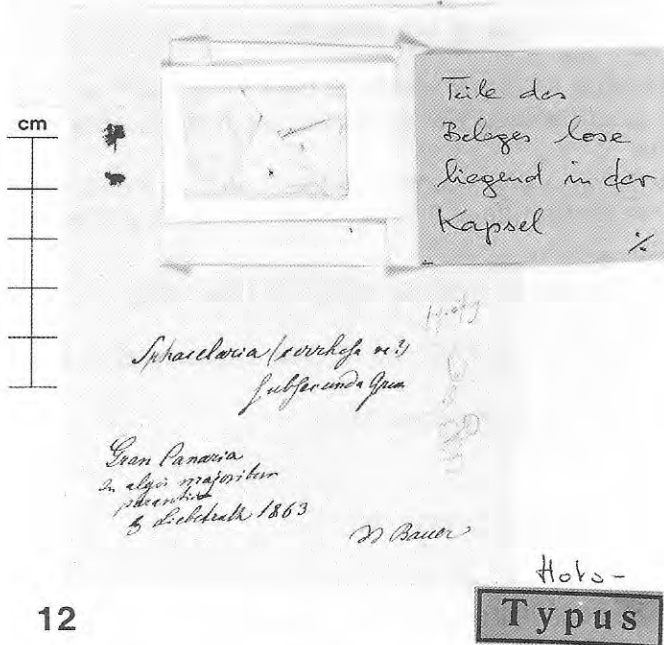 cm
Teile des
Beleges lose
liegend in der
Kapsel
%
Sphacelaria (cirrhosa v?)
subsecunda Grun
Gran Canaria
in algis majoribus
parasitica
Liebetruth 1863
Bauer
Holo-
Typus
12